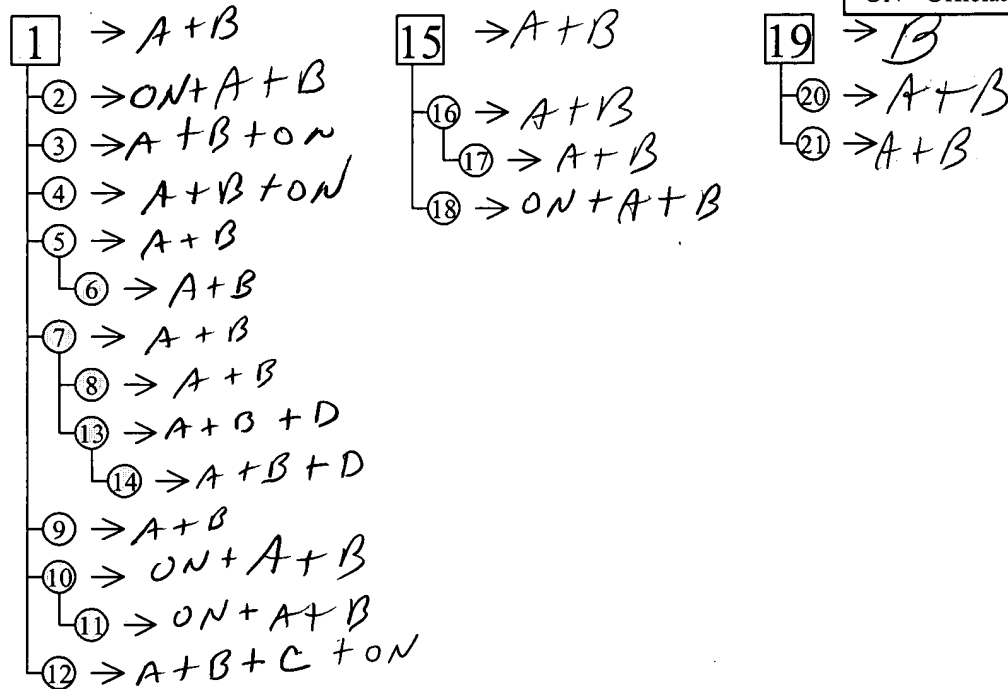 1 → A + B
2 → ON + A + B
3 → A + B + ON
4 → A + B + ON
5 → A + B
6 → A + B
7 → A + B
8 → A + B
13 → A + B + D
14 → A + B + D
9 → A + B
10 → ON + A + B
11 → ON + A + B
12 → A + B + C + ON
15 → A + B
16 → A + B
17 → A + B
18 → ON + A + B
19 → B
20 → A + B
21 → A + B